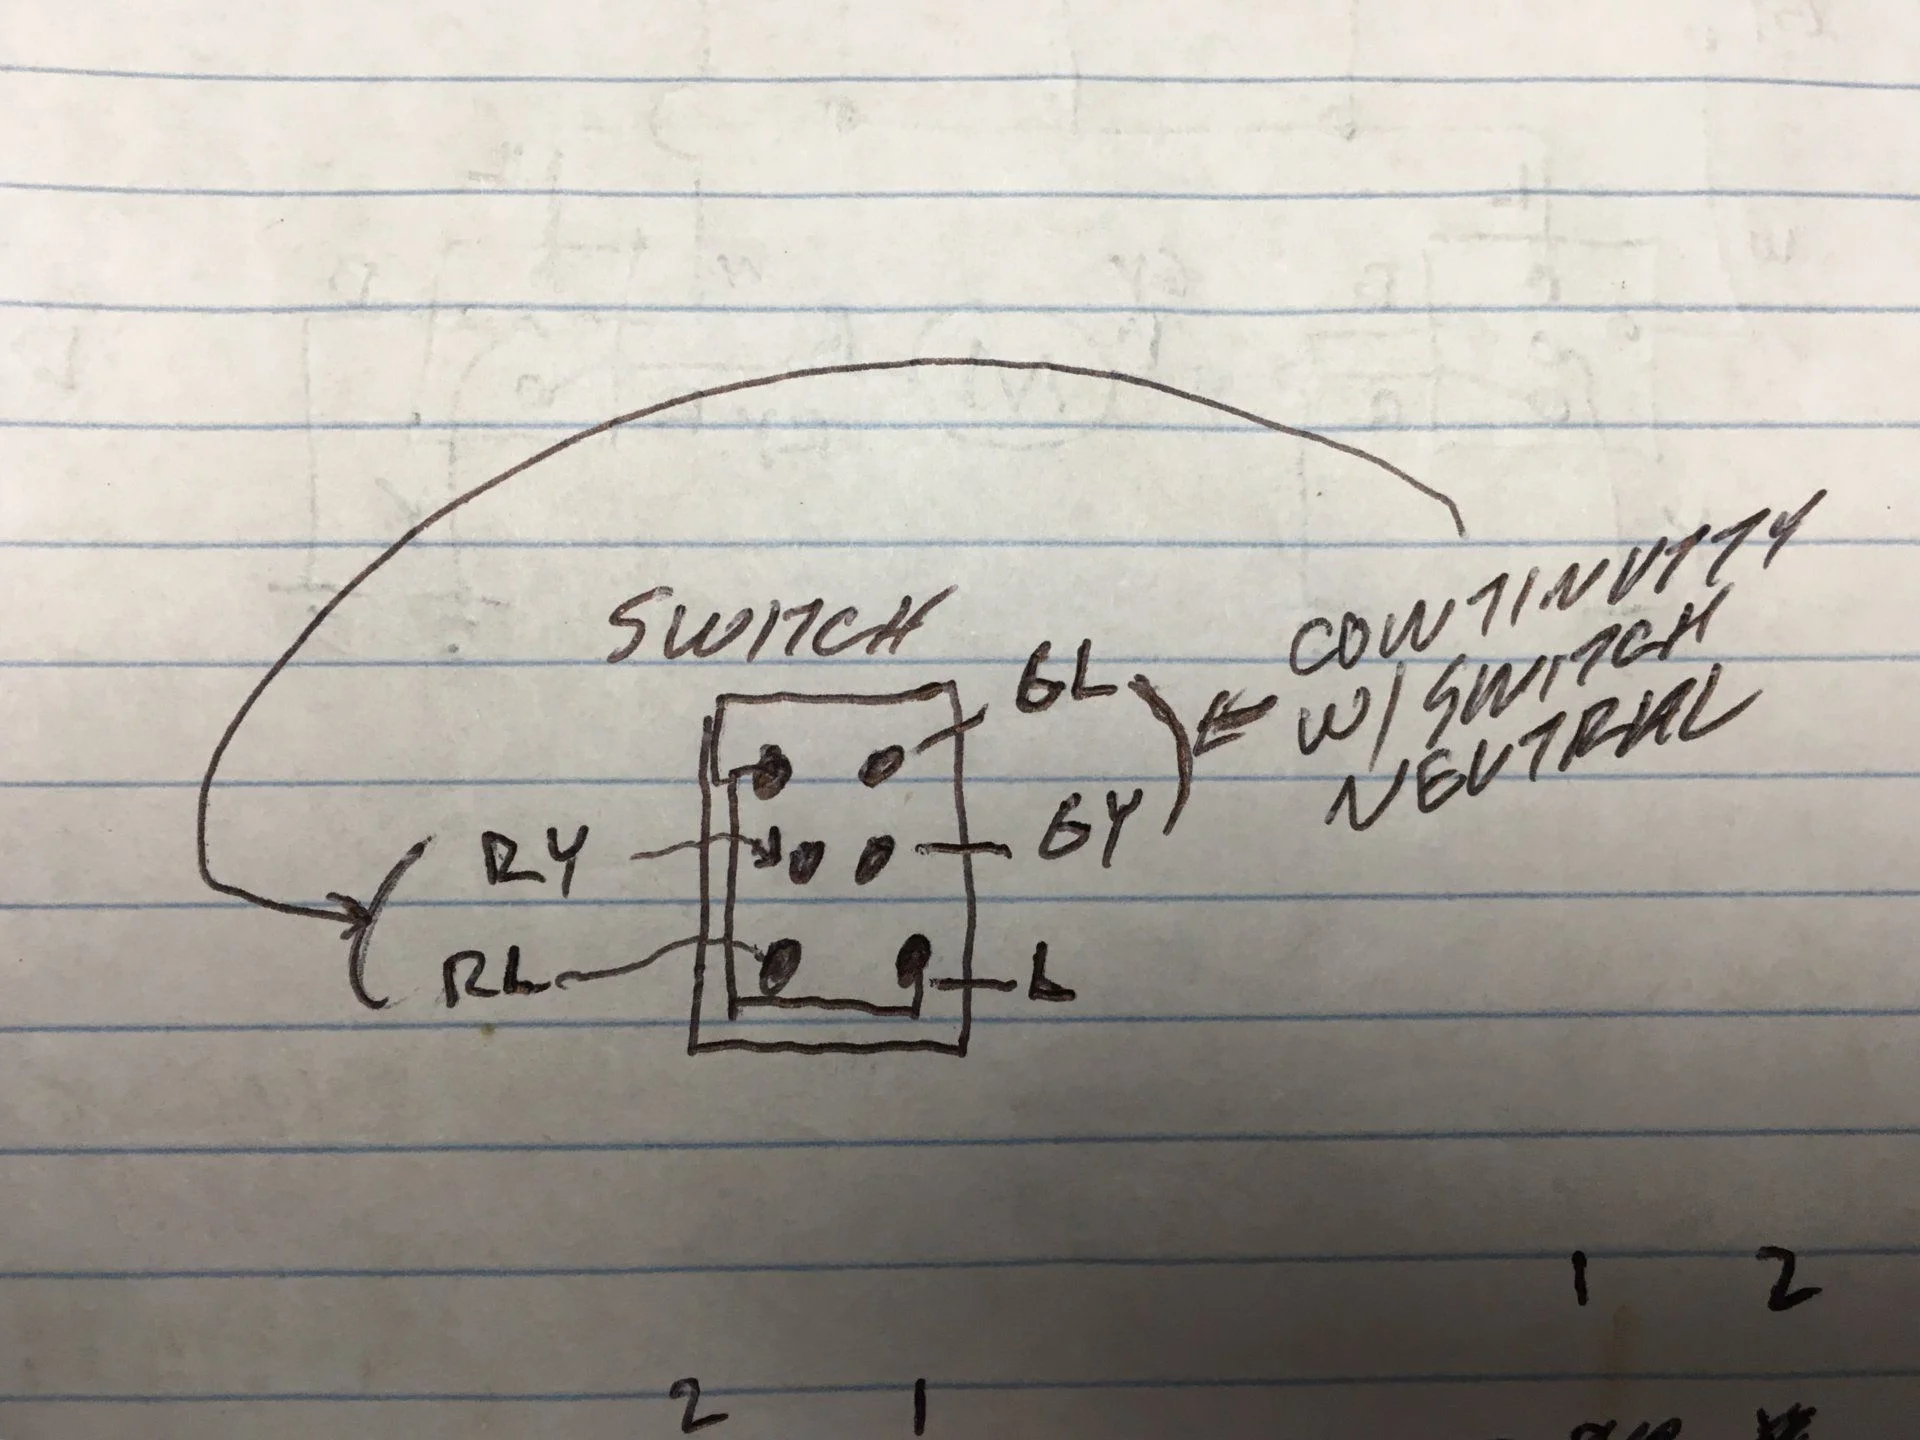 SWITCH
GL
CONTINUITY
W/ SWITCH
NEUTRAL
RY
GY
RL
L
1 2
2 1